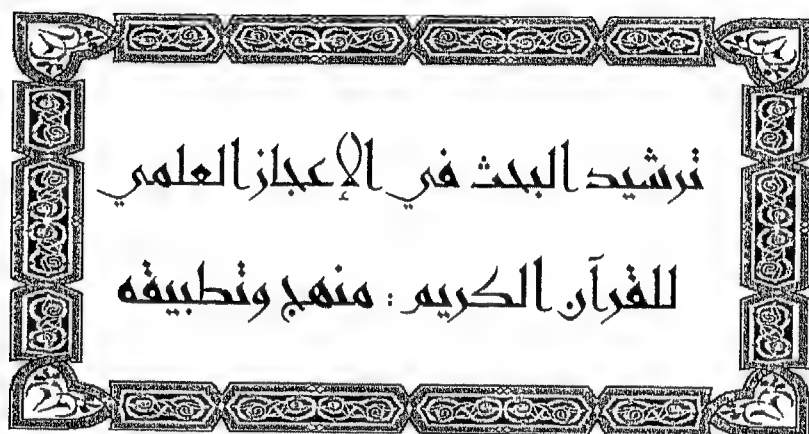 ترشيد البحث في الإعجاز العلمي
للقرآن الكريم : منهج وتطبيقه